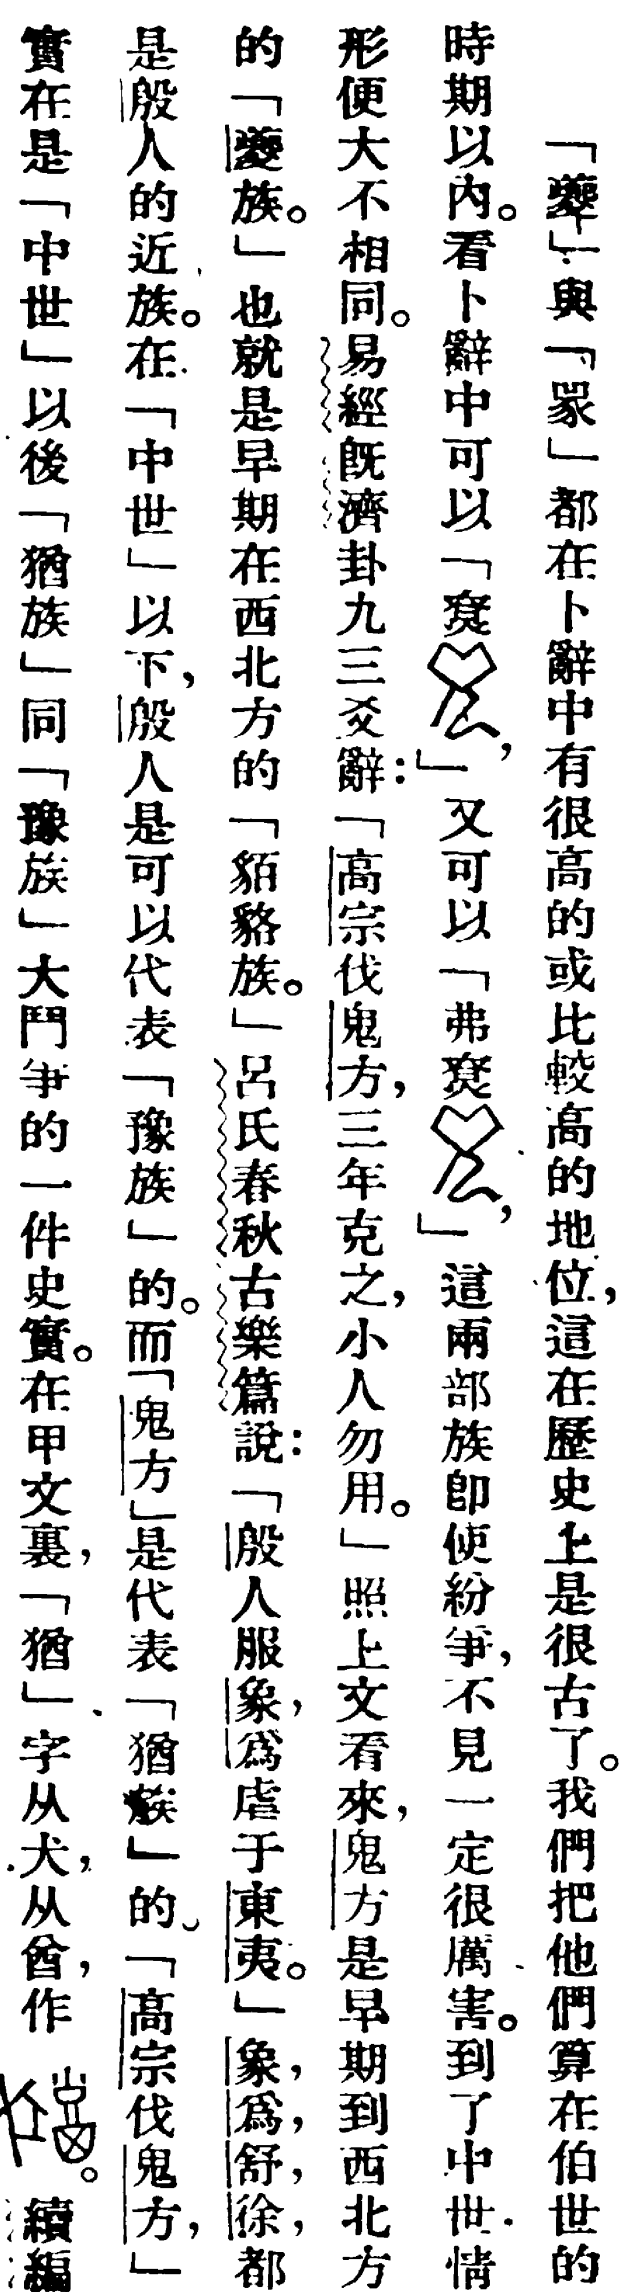 「夒」與「眾」都在卜辭中有很高的或比較高的地位,這在歷史上是很古了。我們把他們算在伯世的
時期以內。看卜辭中可以「寏,」又可以「弗寏,」這兩部族卽使紛爭,不見一定很厲害。到了中世情
形便大不相同。易經旣濟卦九三爻辭:「高宗伐鬼方,三年克之,小人勿用。」照上文看來,鬼方是早期到西北方
的「夒族。」也就是早期在西北方的「貊貉族。」呂氏春秋古樂篇說:「殷人服象,爲虐于東夷。」象,爲,舒,徐,都
是殷人的近族。在「中世」以下,殷人是可以代表「豫族」的。而「鬼方」是代表「猶族」的。「高宗伐鬼方,」
實在是「中世」以後「猶族」同「豫族」大鬥爭的一件史實。在甲文裏,「猶」字从犬,从酋,作。續編